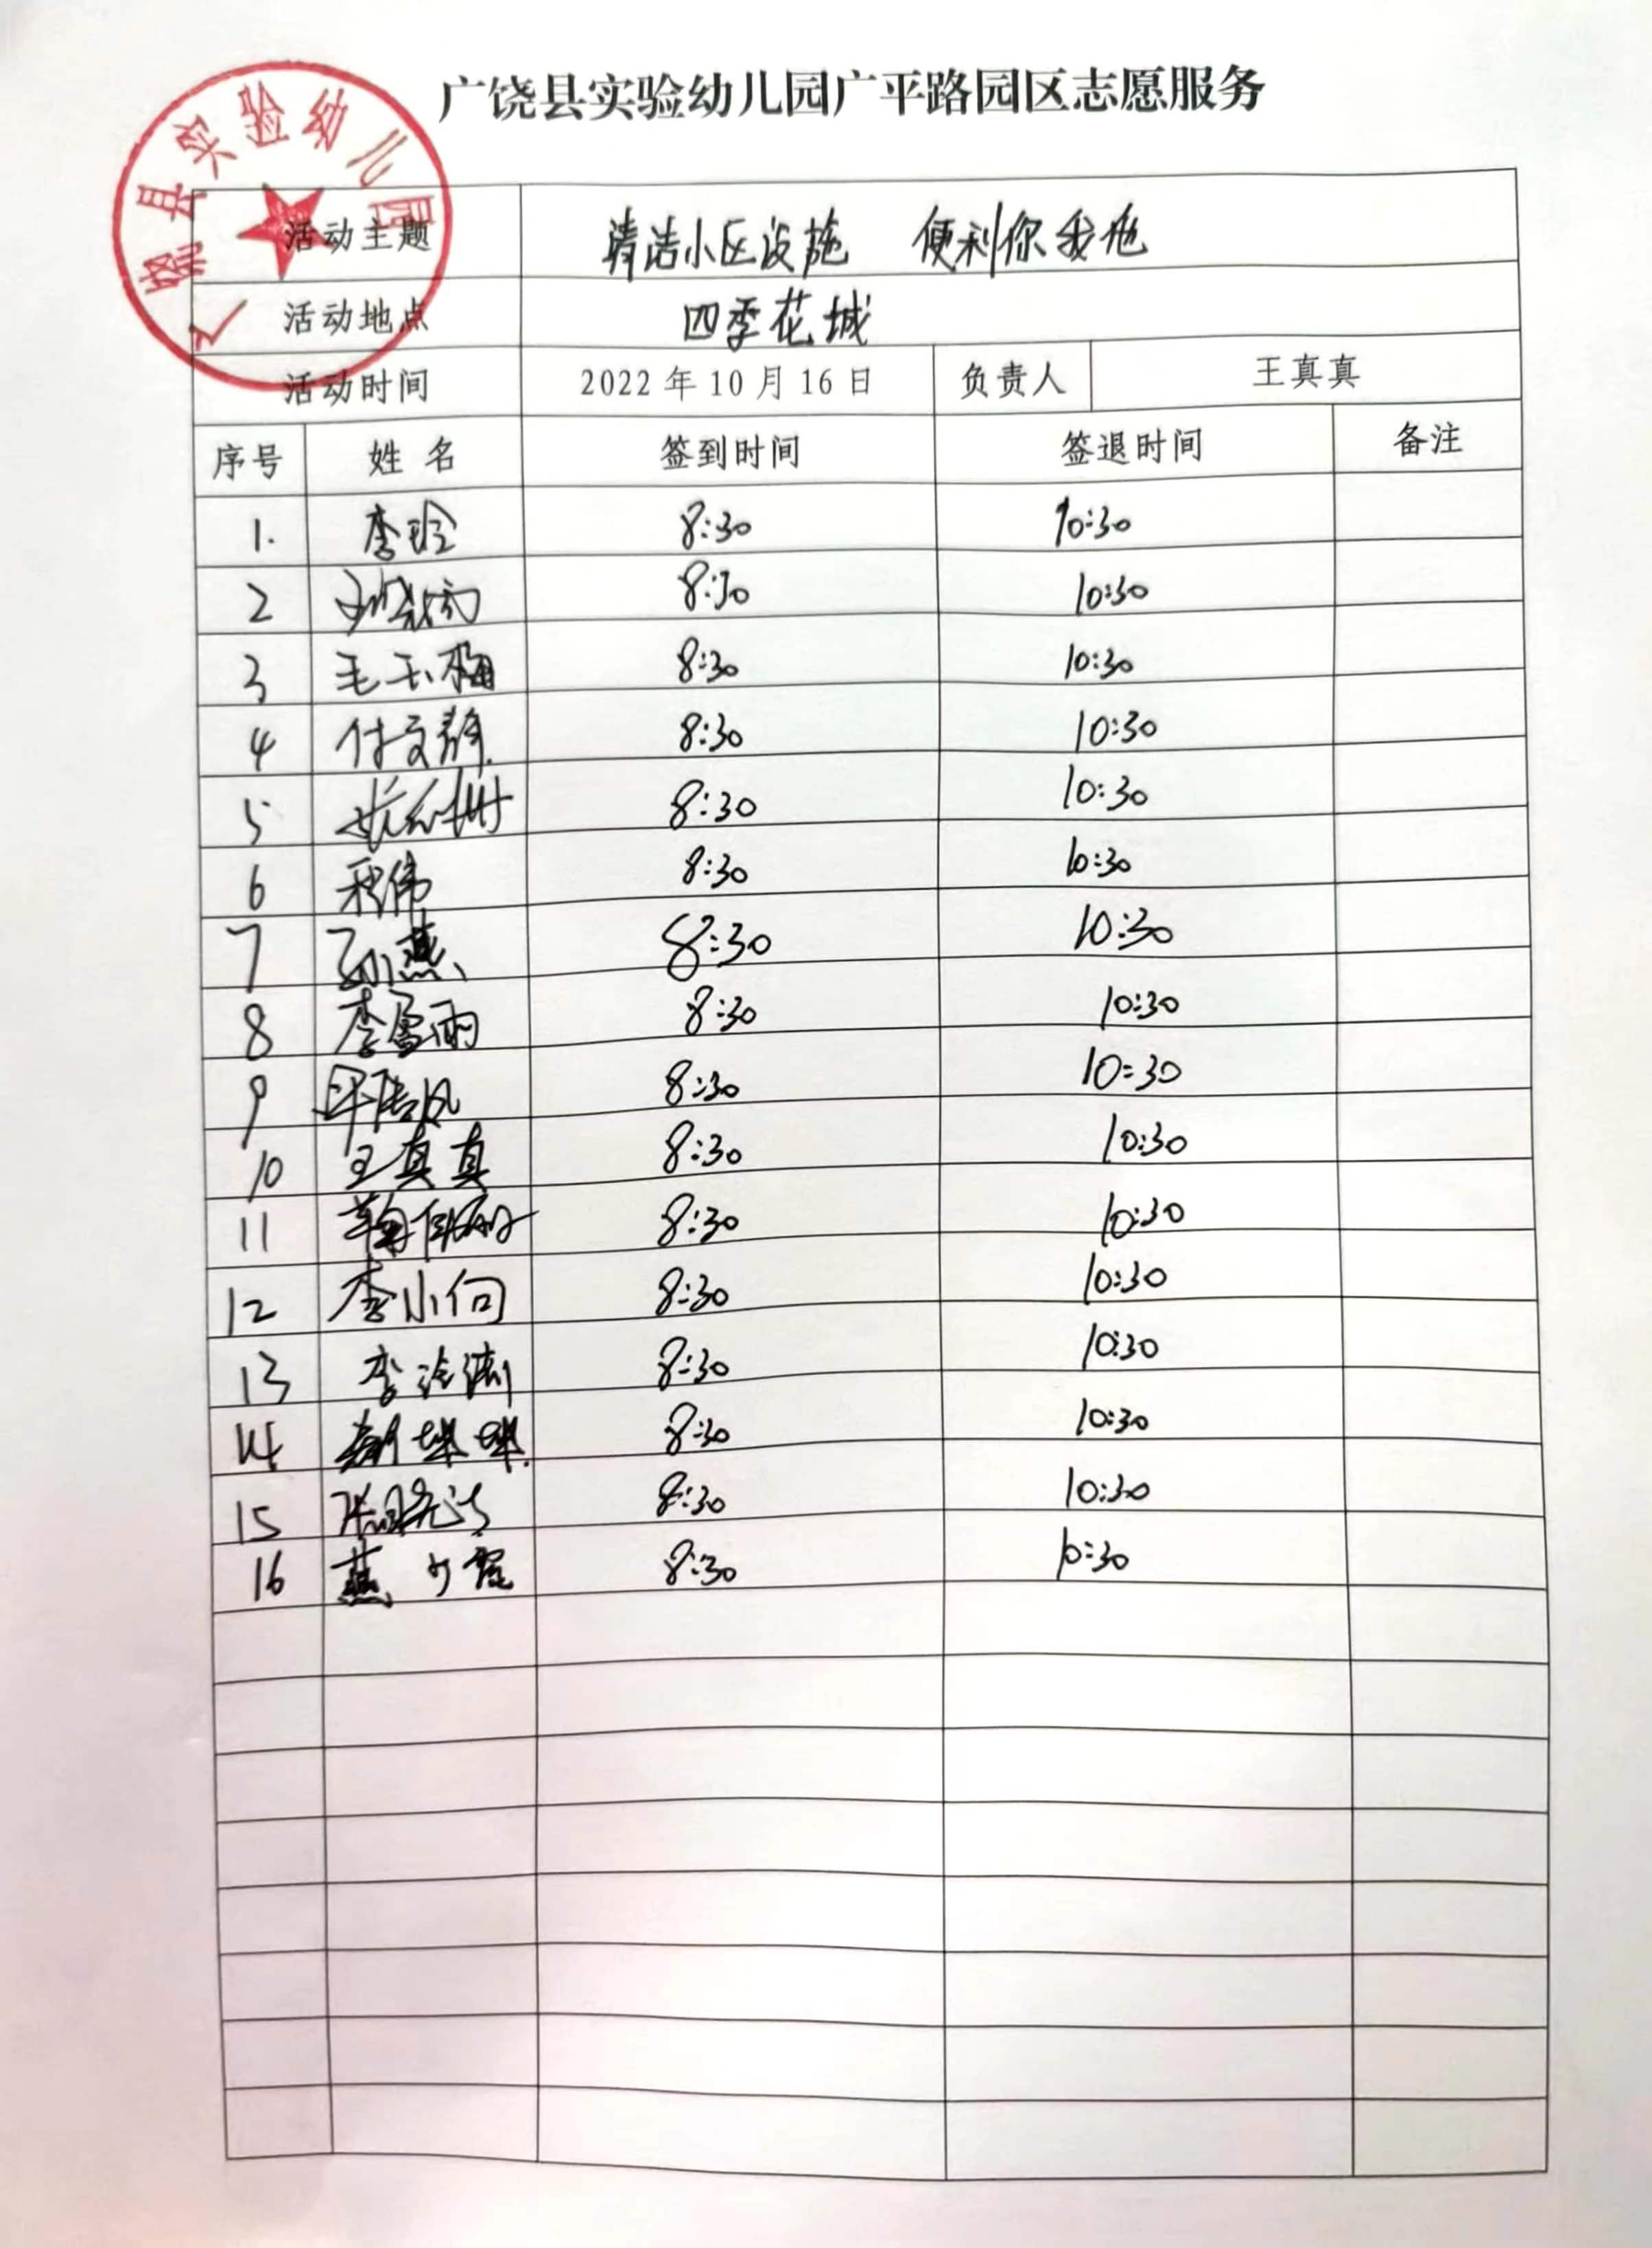 广饶县实验幼儿园广平路园区志愿服务
广饶县实验幼儿园
活动主题 清洁小区设施 便利你我他
活动地点 四季花城
活动时间 2022年10月16日 负责人 王真真
序号 姓名 签到时间 签退时间 备注
1. 李玲 8:30 10:30
2 8:30 10:30
3 毛玉梅 8:30 10:30
4 付文静 8:30 10:30
5 8:30 10:30
6 程伟 8:30 10:30
7 孙燕 8:30 10:30
8 李雪雨 8:30 10:30
9 8:30 10:30
10 王真真 8:30 10:30
11 8:30 10:30
12 李小向 8:30 10:30
13 李 8:30 10:30
14 8:30 10:30
15 8:30 10:30
16 燕少霞 8:30 10:30